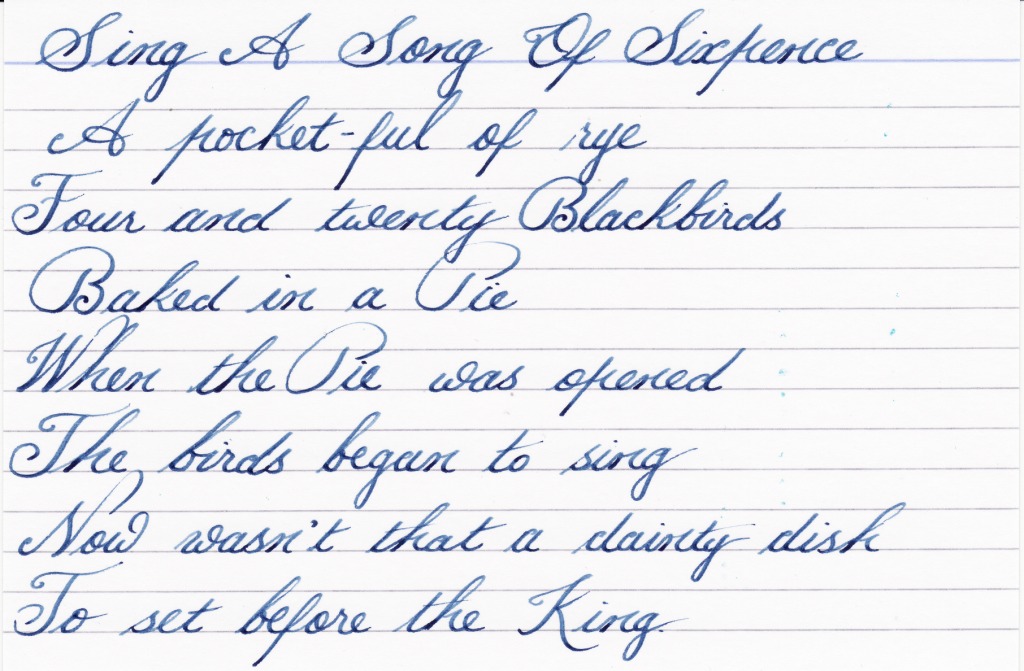 Sing A Song Of Sixpence
A pocket-ful of rye
Four and twenty Blackbirds
Baked in a Pie
When the Pie was opened
The birds began to sing
Now wasn't that a dainty dish
To set before the King.